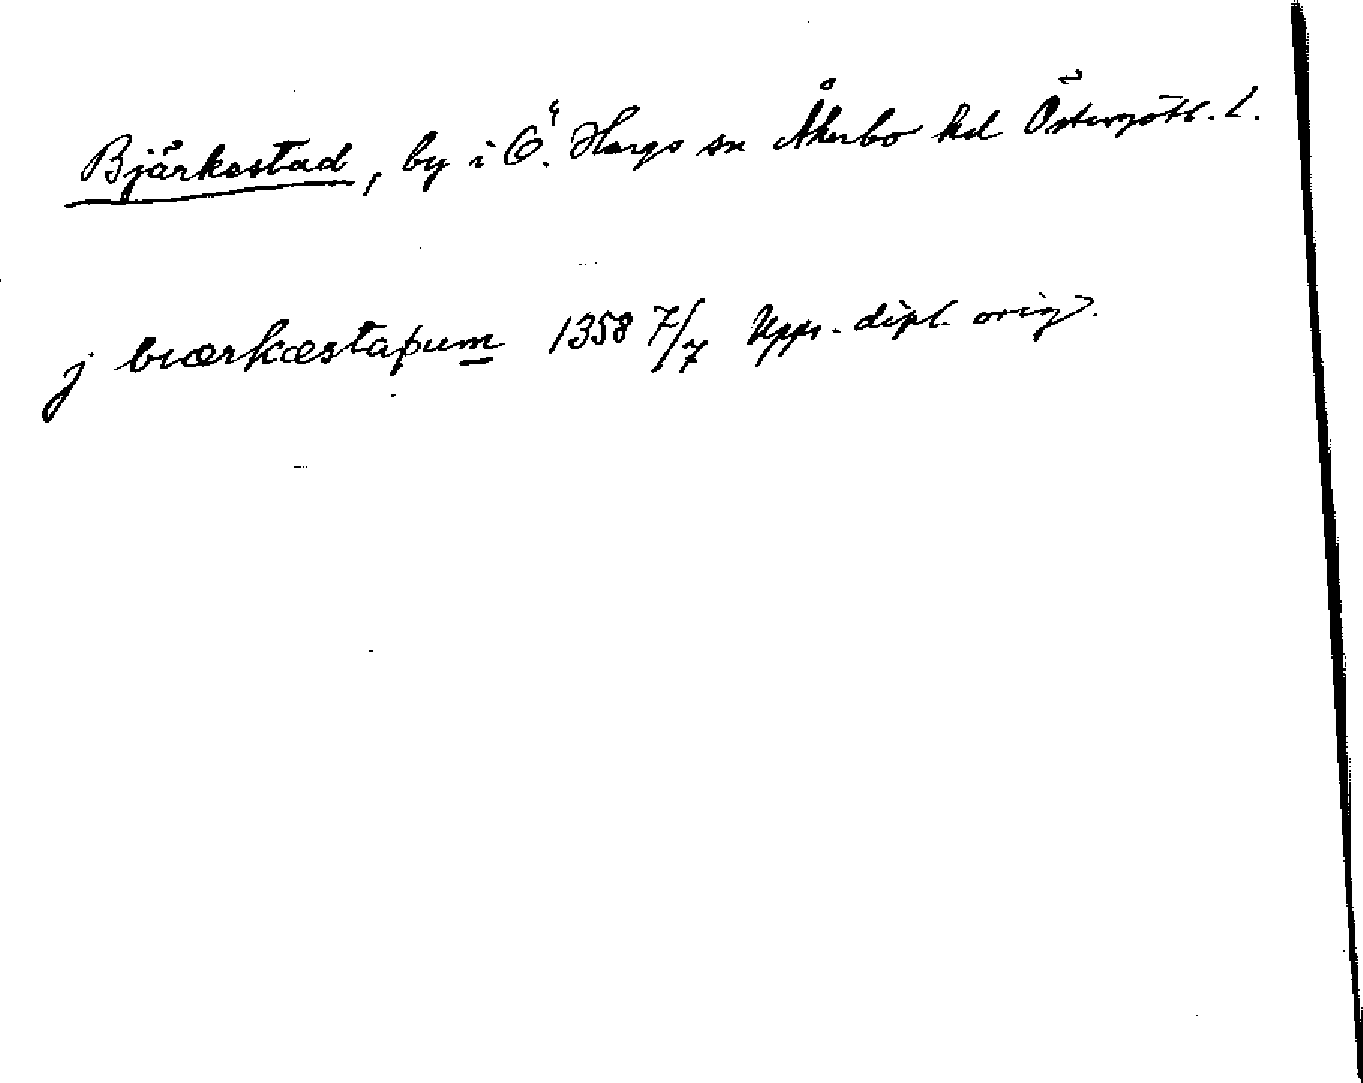 Bjärkastad, by i Ö. Hargs sn Åkerbo hd Östergötl. L.
j biærkæstaþum 1358 7/7 Upps. dipl. orig.